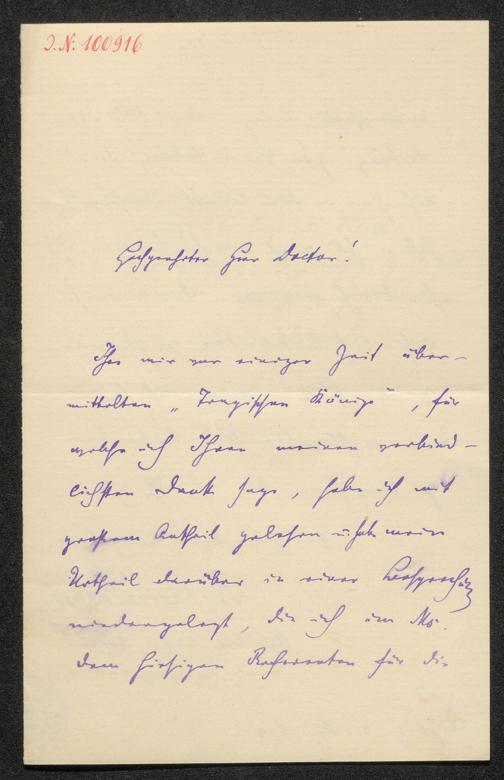 I.N. 100916
Hochgeehrter Herr Doctor!
Ihre mir vor einiger Zeit über-
mittelten „Tragischen Könige", für
welche ich Ihnen meinen verbind-
lichsten Dank sage, habe ich mit
großem Antheil gelesen u. habe mein
Urtheil darüber in einer Besprechung
niedergelegt, die ich im Ms.
dem hiesigen Referenten für die